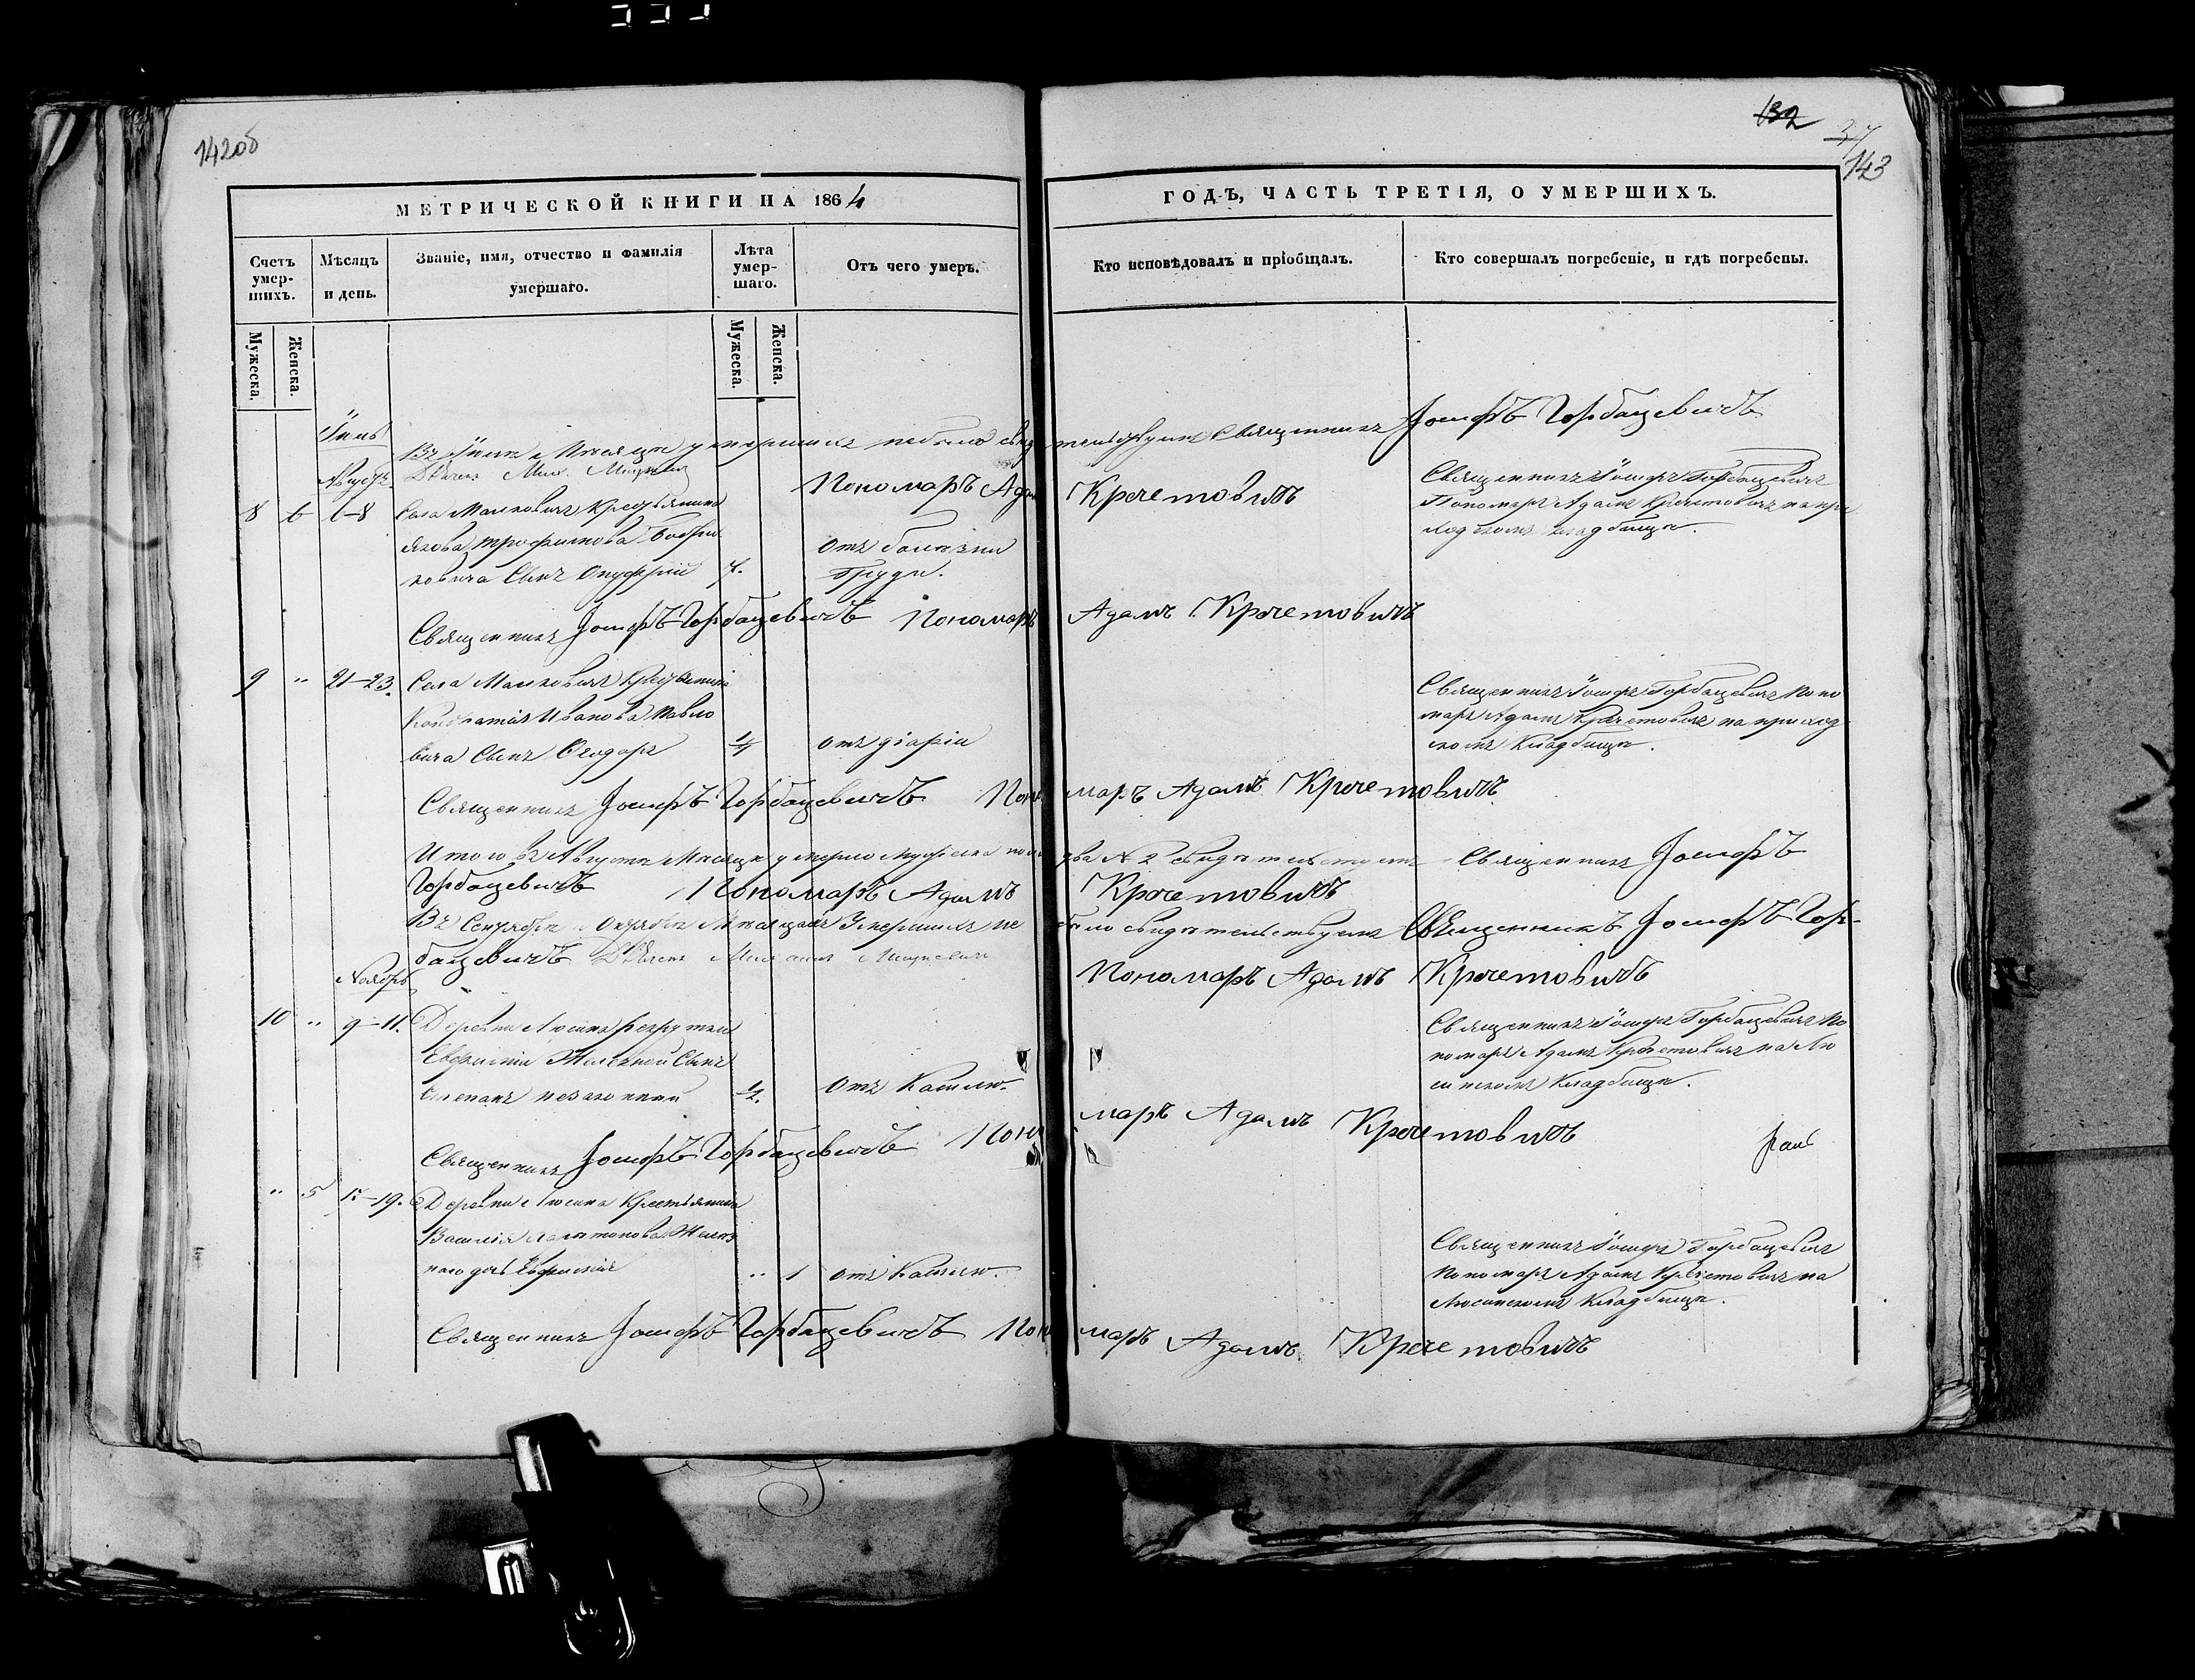 142об
132
37
143
МЕТРИЧЕСКОЙ КНИГИ НА 1864
ГОДЪ, ЧАСТЬ ТРЕТІЯ, О УМЕРШИХЪ.
Счетъ умер-шихъ.
Мѣсяцъ и день.
Званіе, имя, отчество и фамилія умершаго.
Лѣта умер-шаго.
Отъ чего умеръ.
Кто исповѣдовалъ и пріобщалъ.
Кто совершалъ погребеніе, и гдѣ погребены.
Мужеска.
Женска.
Мужеска.
Женска.
Въ Мѣсяцѣ умершихъ небыло свидѣтельствуемъ Священникъ Іосифъ Горбацевичъ
Августъ
Пономаръ Адамъ Кречетовичъ
8 6-8 Села Малковичъ Крестьянина
Якова Трофимова
сынъ Онуфрій 7.
Отъ болѣзни
груди.
Священникъ Іосифъ Горбацевичъ
Пономаръ Адамъ Кречетовичъ на при
ходскомъ кладбищѣ.
Священникъ Іосифъ Горбацевичъ Пономаръ Адамъ Кречетовичъ
9 " 21-23. Села Малковичъ Крестьянина
Кондратія Иванова Павло
вича сынъ Ѳеодоръ 1/4 отъ діаріи
Священникъ Іосифъ Горбацевичъ Поно
маръ Адамъ Кречетовичъ на приход
скомъ Кладбищѣ.
Священникъ Іосифъ Горбацевичъ Пономаръ Адамъ Кречетовичъ
Итого въ Августѣ Мѣсяцѣ умерло Мужеска пола два № 2 свидѣтельствуемъ Священникъ Іосифъ
Горбацевичъ Пономаръ Адамъ Кречетовичъ
Въ Сентябрѣ и Октябрѣ Мѣсяцахъ Умершихъ не было свидѣтельствуемъ Священникъ Іосифъ Гор-
бацевичъ Пономаръ Адамъ Кречетовичъ
Ноябрь
10 " 9-11. Деревни Люсина Рекрутки
Евфиміи Желѣзной Сынъ
Степанъ незаконный 1/2. Отъ Кашлю.
Священникъ Іосифъ Горбацевичъ По
номаръ Адамъ Кречетовичъ на Лю
синскомъ Кладбищѣ.
Священникъ Іосифъ Горбацевичъ Пономаръ Адамъ Кречетовичъ
" 5 -19. Деревни Люсина Крестьянина
Василія Желѣз
наго дочь Евфимія " 1 отъ Кашлю.
Священникъ Іосифъ Горбацевичъ
Пономаръ Адамъ Кречетовичъ на
Люсинскомъ Кладбищѣ.
Священникъ Іосифъ Горбацевичъ Пономаръ Адамъ Кречетовичъ